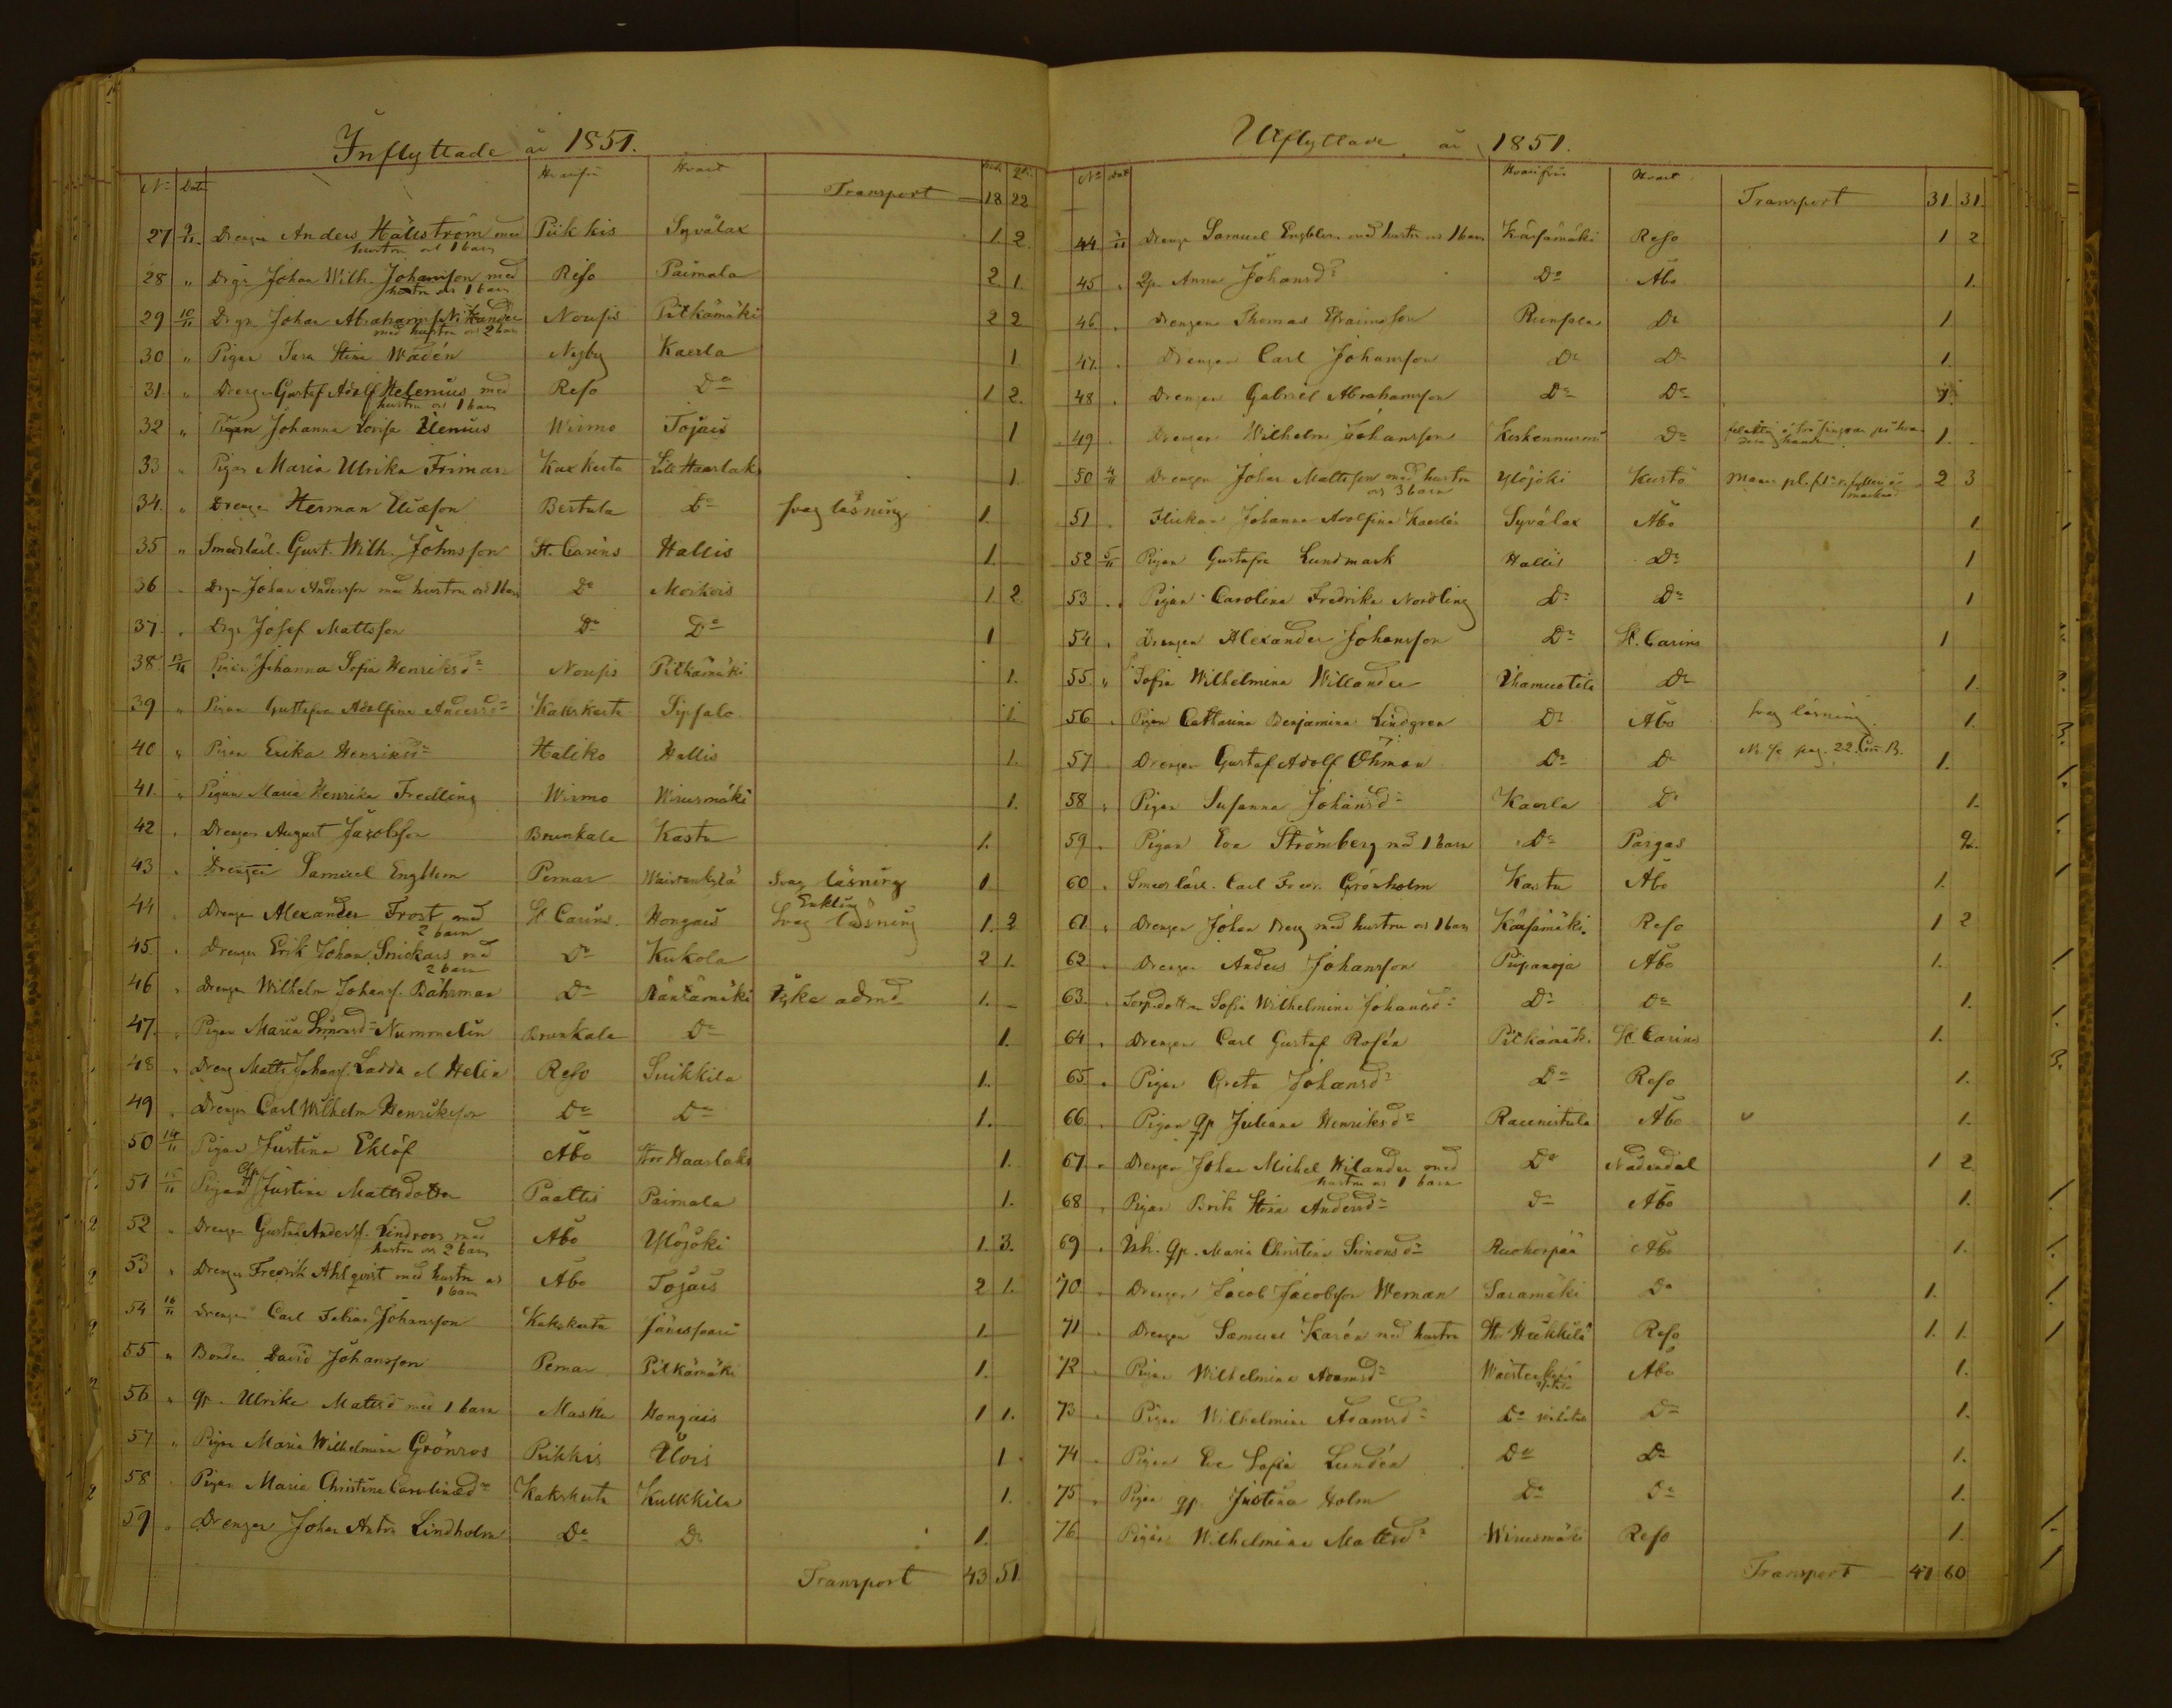 Inflyttade år 1851.
No Dat. Hvarifrå Hvart
Transport 18 22
27 9/11 Drengen Anders Hällström med Piikkis Syvälax 1. 2.
hustru och 1 barn
28 " Drgn Johan Wilh. Johansson med Reso Paimala 2 1.
hustru och 1 barn
29 10/11 Drgn Johan Abrahamss. Nikander Nousis Pitkämäki 2 2
med hustru och 2 barn
30 " Pigan Sara Stina Wadén Nyby Kaerla 1
31. " Drengen Gustaf Adolf Helenius med Reso Do 1 2.
hustru och 1 barn
32 " Pigan Johanna Lovisa Ilenius Wirmo Tojais 1
33 " Pigan Maria Ulrika Friman Kaxkerta Lill Haarla 1.
34. " Drengen Herman Eliasson Bertula Do svag läsning 1.
35 " Smedslärl. Gust. Wilh. Johnsson St. Carins Hallis 1.
36 " Drgn Johan Andersson med hustru och 1 barn Do Moikois 1. 2
37. " Drgn Josef Mattsson Do Do 1
38. 13/11 Pigan Johanna Sofia Henriksdr Nousis Pitkämäki 1.
39 " Pigan Gustafva Adolfina Andersdr Kakskerta Sipsalo 1.
40 " Pigan Erika Henriksdr Haliko Hallis 1.
41. " Pigan Maria Henrika Fredling Wirmo Wirusmäki 1.
42 " Drengen August Jacobsson Brunkala Kastu 1.
43 " Drengen Samuel Engblom Pemar Waistenkylä Svag läsning 1
44 " Drengen Alexander Frost med St Carins. Hongais Enkling Svag läsning 1. 2
2 barn
45. " Drengen Erik Johan Snickars med Do Kukola 2 1.
2 barn
46 " Drengen Wilhelm Johanss. Bahrman Do Räntämäki 1.
47. " Pigan Maria Simonsdr Nummelin Brunkala Do 1.
48 " Dreng Matts Johanss. Ladda el Helin Reso Suikkila 1.
49 " Drengen Carl Wilhelm Henriksson Do Do 1.
50 14/11 Pigan Justina Eklöf Åbo Stor Haarla 1.
51 15/11 Pigan qp Justina Mattsdotter Paattis Paimala 1.
52 " Drengen Gustaf Anderss. Lindroos med Åbo Ylöjoki 1. 3.
hustru och 2 barn
53 " Drengen Fredrik Ahlqvist med hustru och Åbo Tojais 2 1.
1 barn
54 16/11 Drengen Carl Johansson Kakskerta Jänessaari 1.
55 " Bonden David Johansson Pemar Pitkämäki 1.
56 " qp. Ulrika Matsdr med 1 barn Masku Hongais 1 1.
57 " Pigan Maria Wilhelmina Grönroos Piikkis Ilois 1
58 Pigan Maria Christina Carolinædr Kakskerta Kulkkila 1.
59 " Drengen Johan Anton Lindholm Do Do 1.
Transport 43 51.
Utflyttade år 1851.
No Dat Hvarifrån Hvart
Transport 31 31.
44 Drengen Samuel Engblom med hustru och 1 barn Kärsämäki Reso 1 2
45 . qp. Anna Johansdr Do Åbo 1.
46 . Drengen Thomas Efraimsson Runsala Do 1
47. . Drengen Carl Johansson Do Do 1.
48 . Drengen Gabriel Abrahamsson Do Do 1.
49 . Drengen Wilhelm Johansson Koskennurmi Do 1.
50 4/11 Drengen Johan Mattsson med hustru Ylöjoki Kustö 2 3
och 3 barn
51 . Flickan Johanna Adolfina Kaerla Syvälax Åbo 1
52 5/11 Pigan Gustafva Lundmark Hallis Do 1
53 . Pigan Carolina Fredrika Nordling Do Do 1
54 . Drengen Alexander Johansson Do St. Carins 1
55 " Sofia Wilhelmina Willander Ihamuotila Do 1.
56 . Pigan Catharina Benjamina Lindgren Do Åbo Svag läsning. 1.
57 Drengen Gustaf Adolf Öhman Do Do pag. 22. 1.
58 " Pigan Susanna Johansdr Kaerla Do 1.
59 . Pigan Eva Strömberg med 1 barn Do Pargas 2.
60 . Smedslärl. Carl Fredr. Grönholm Kastu Åbo 1.
61 " Drengen Johan Berg med hustru och 1 barn Kärsämäki Reso 1 2
62 . Drengen Anders Johansson Piipanoja Åbo 1.
63. . Torpdottern Sofia Wilhelmina Johansdr Do Do 1.
64 . Drengen Carl Gustaf Rosén Pitkämäki St Carins 1.
65 . Pigan Greta Johansdr Do Reso 1.
66 . Pigan qp Juliana Henriksdr Raunistula Åbo 1.
67. . Drengen Johan Michel Hilander med Do Nådendal 1 2
hustru och 1 barn
68 " Pigan Brita Stina Andersdr Do Åbo 1.
69 . Inh. qp. Maria Christina Simonsdr Ruohonpää Åbo 1.
70. . Drengen Jacob Jacobsson Weman Saramäki Do 1.
71 . Drengen Samuel Karén med hustru St. Heikkilä Reso 1. 1.
72 . Pigan Wilhelmina Adamsdr Waistenkylä Åbo 1.
73 . Pigan Wilhelmina Adamsdr Do Do 1.
74 Pigan Eva Sofia Lundén Do Do 1.
75 . Pigan qp Justina Holm Do Do 1.
76 Pigan Wilhelmina Mattsdr Wirusmäki Reso 1.
Transport 47 60